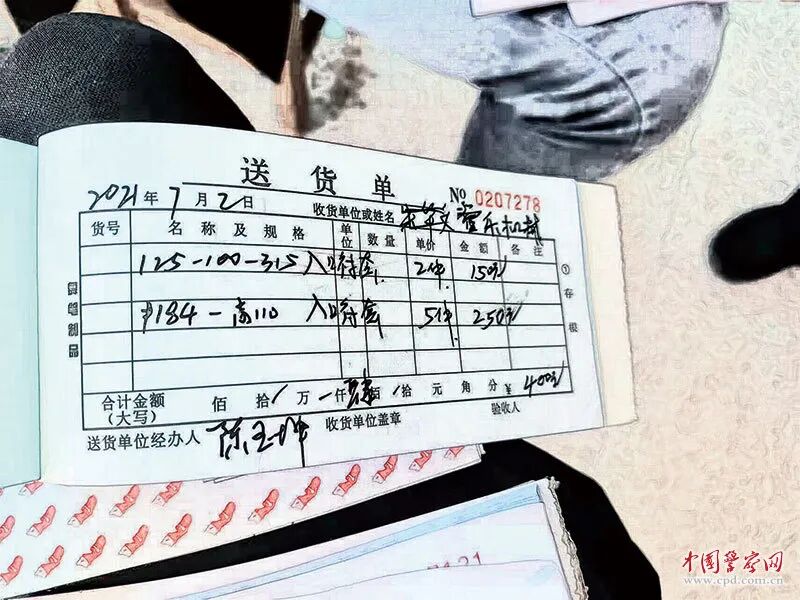 送货单
2021年7月2日
No 0207278
收货单位或姓名
货号 名称及规格 单位 数量 单价 金额 备注
125-100-315 入口衬套 2件 150元
φ184-高110 入口衬套 5件 250元
合计金额(大写) 佰 拾 万 仟 肆佰 拾 元 角 分 ¥400元
送货单位经办人
收货单位盖章
验收人
①存根
中国警察网
www.cpd.com.cn